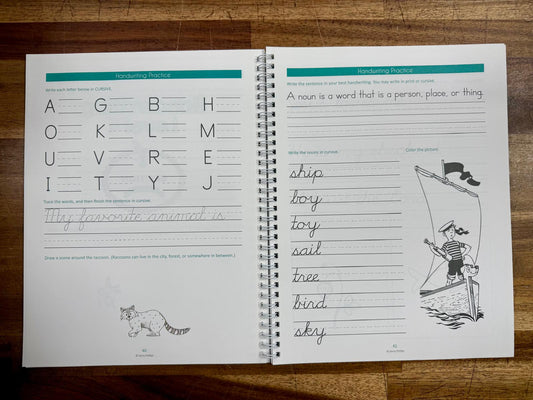 Handwriting Practice
Write each letter below in CURSIVE.
A G B H
O K L M
U V R E
I T Y J
Trace the words, and then finish the sentence in cursive.
My favorite animal is
Draw a scene around the raccoon. (Raccoons can live in the city, forest, or somewhere in between.)
Handwriting Practice
Write the sentence in your best handwriting. You may write in print or cursive.
A noun is a word that is a person, place, or thing.
Write the nouns in cursive.
Color the picture.
ship
boy
toy
sail
tree
bird
sky